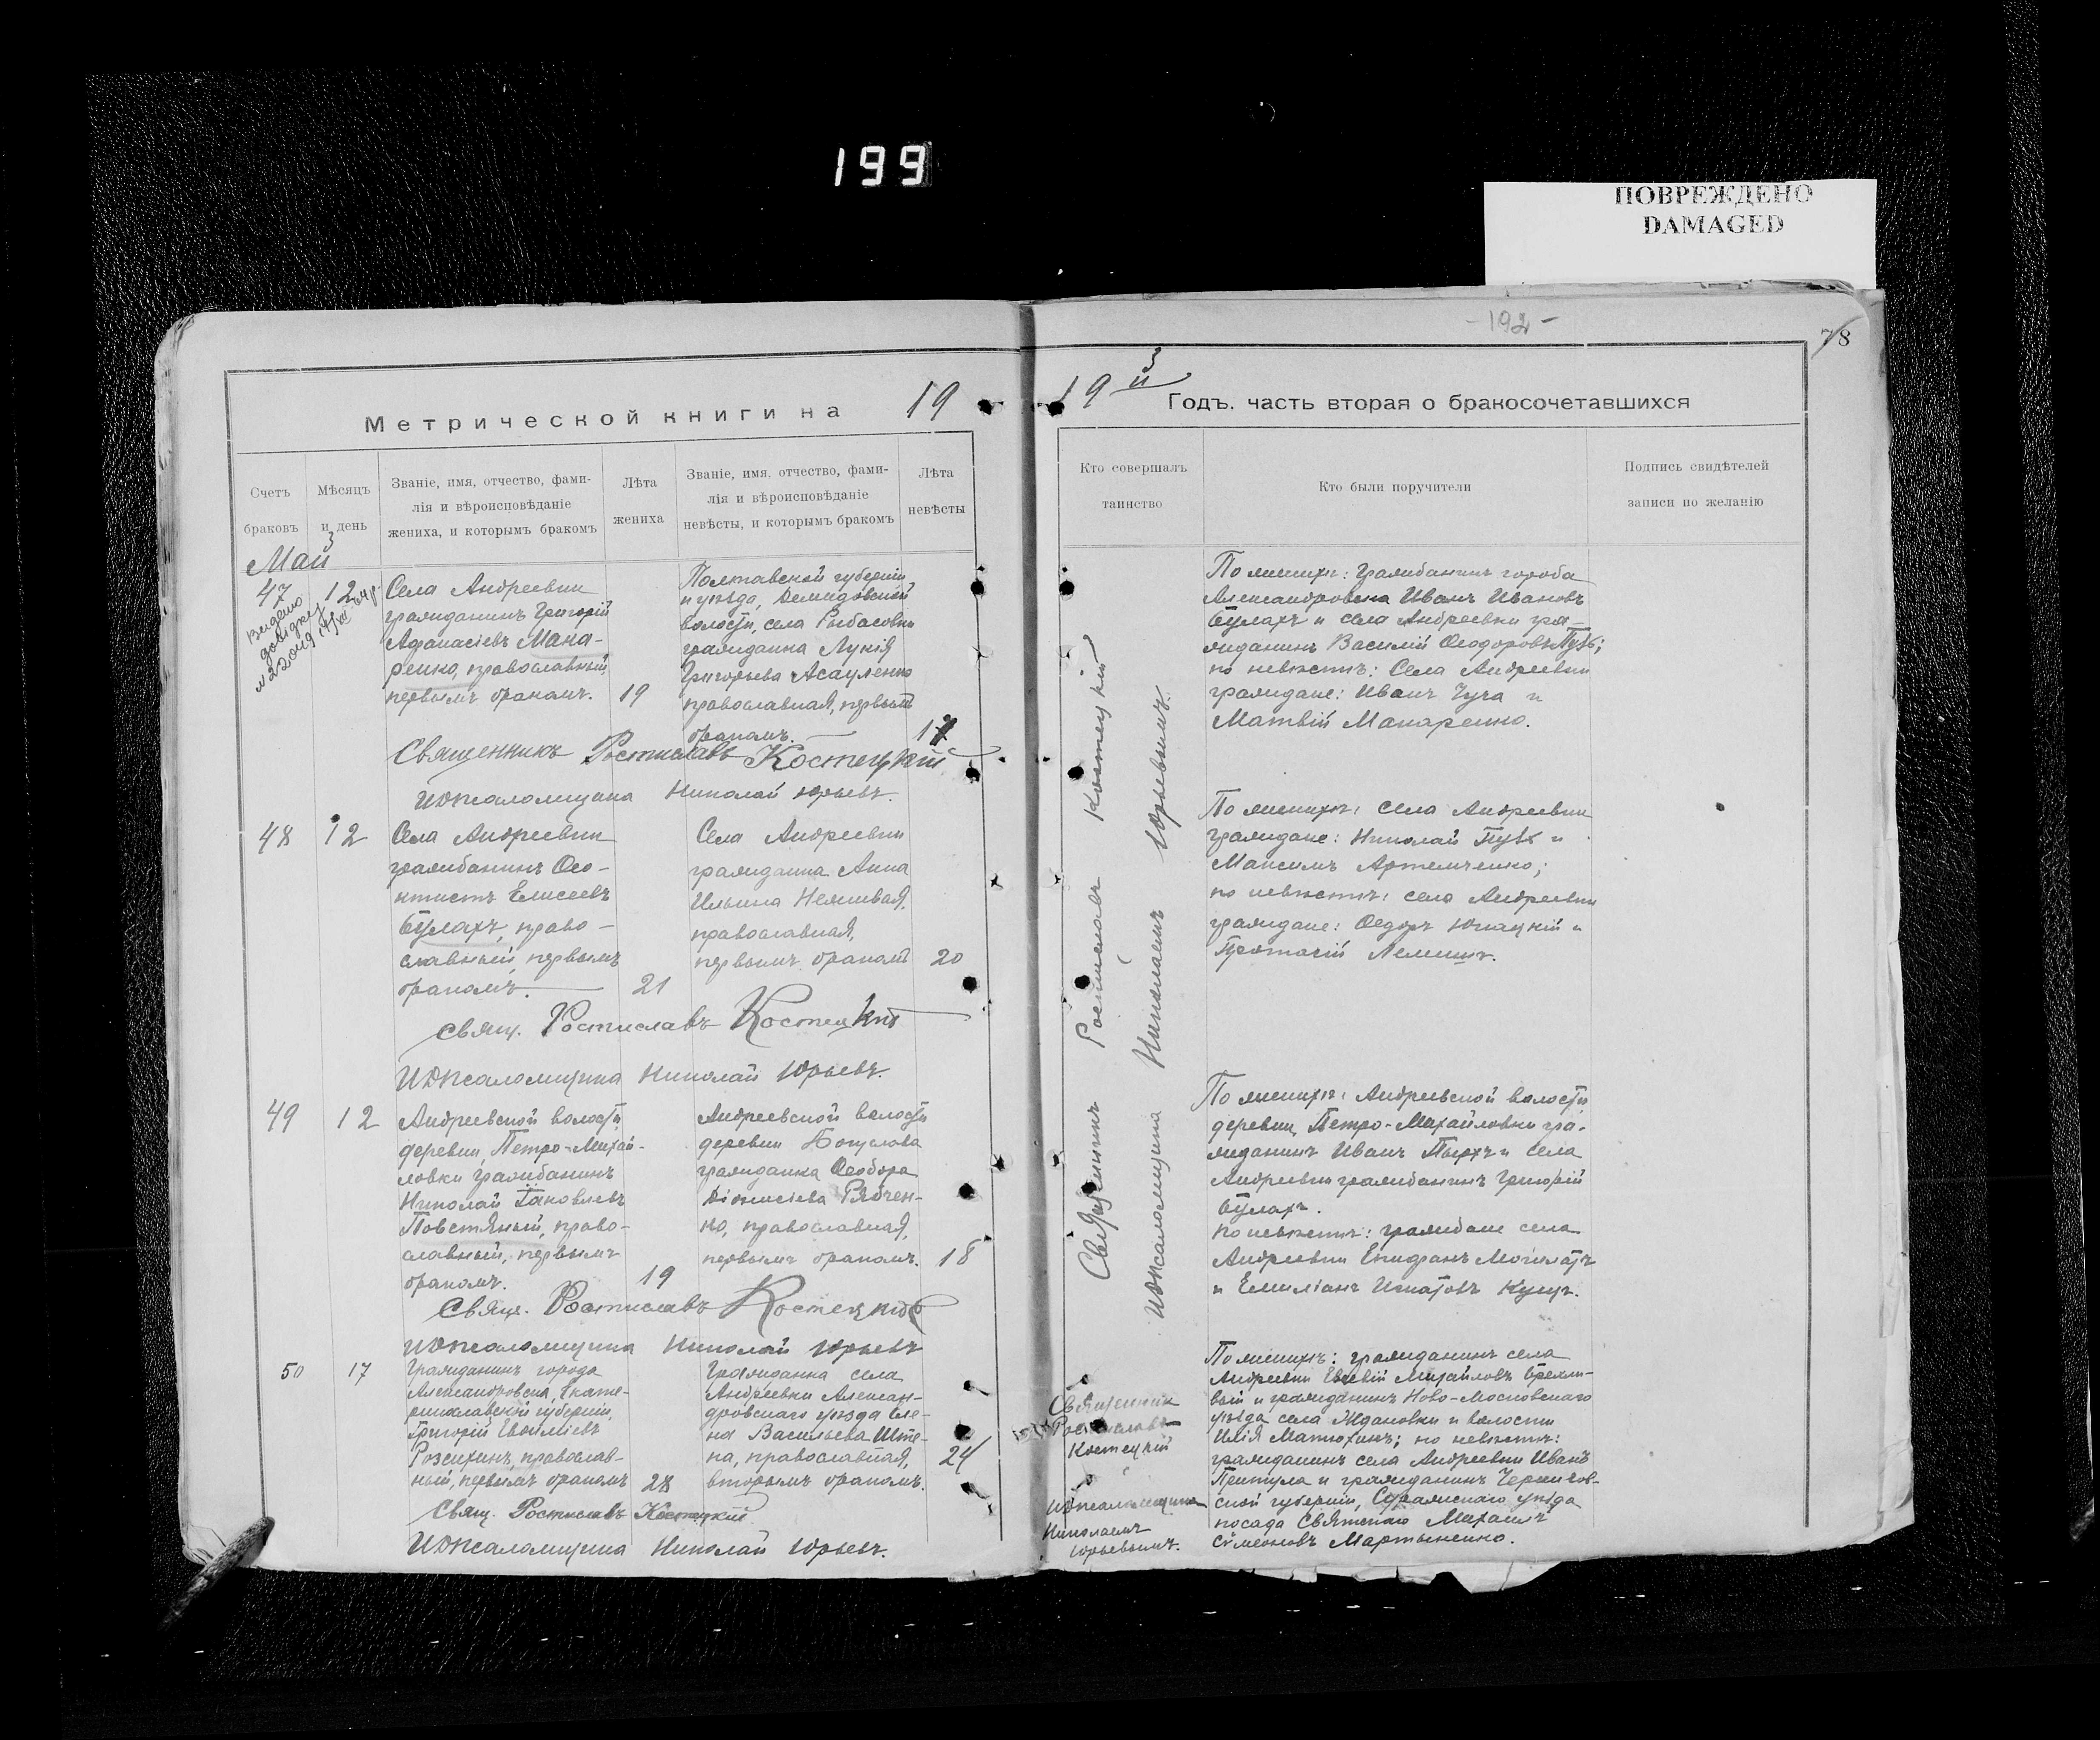 199
ПОВРЕЖДЕНО
DAMAGED
-192-
78
Метрической книги на 19
19 Годъ. часть вторая о бракосочетавшихся
Счетъ браковъ
Мѣсяцъ и день
Званіе, имя, отчество, фами-
лія и вѣроисповѣданіе
жениха, и которымъ бракомъ
Лѣта жениха
Званіе, имя, отчество, фами-
лія и вѣроисповѣданіе
невѣсты, и которымъ бракомъ
Лѣта невѣсты
Кто совершалъ
таинство
Кто были поручители
Подпись свидѣтелей
записи по желанію
Май
47
12
Видано
довідку
Села Андреевки
гражданинъ Григорій
Афанасіевъ Мака-
ренко, православный,
первымъ бракомъ.
19
Полтавской губерніи
и уѣзда, Демидовской
волости, села
гражданка Лукія
Григорьева Асауленко
православная, первымъ
бракомъ.
17
Священникъ Ростиславъ Костецкій
ИДПсаломщика Николай Юрьевъ.
По женихѣ: гражданинъ города
Александровска Иванъ Ивановъ
Булахъ и села Андреевки гра-
жданинъ Василій Ѳеодоровъ Пувъ;
по невѣстѣ: Села Андреевки
граждане: Иванъ Чуча и
Матвій Макаренко.
48
12
Села Андреевки
гражданинъ Ѳео-
ктистъ Елисеевъ
Булахъ, право-
славный, первымъ
бракомъ.
21
Села Андреевки
гражданка Анна
Ильина Нежива́я,
православная,
первымъ бракомъ
20
Свящ. Ростиславъ Костецкій
ИДПсаломщика Николай Юрьевъ.
По женихѣ: села Андреевки
граждане: Николай Пувъ и
Максимъ Артемченко;
по невѣстѣ: села Андреевки
граждане: Ѳедоръ и
Протасій Лемишъ.
49
12
Андреевской волости
деревни, Петро-Михай-
ловки гражданинъ
Николай Іаковлевъ
Повстяный, право-
славный, первымъ
бракомъ.
19
Андреевской волости
деревни Богуслова
гражданка Ѳеодора
Діонисіева Рябчен-
ко, православная,
первымъ бракомъ.
18
Свящ. Ростиславъ Костецкій
ИДПсаломщика Николай Юрьевъ
По женихѣ: Андреевской волости,
деревни, Петро-Михайловки гра-
жданинъ Иванъ и села
Андреевки гражданинъ Григорій
Булахъ.
по невѣстѣ: граждане села
Андреевки Епифанъ
и Емиліанъ Игнатовъ Куцъ.
Священникъ Ростиславъ Костецкій
ИДПсаломщика Николаемъ Юрьевымъ
50
17
Гражданинъ города
Александровска, Екате-
ринославской губерніи,
Григорій Евфиміевъ
Розсихинъ, православ-
ный, первымъ бракомъ
28
Гражданка села
Андреевки Алексан-
дровскаго уѣзда Еле-
на Васильева Шпе-
ка, православная,
вторымъ бракомъ.
24
Свящ. Ростиславъ Костецкій
ИДПсаломщика Николай Юрьевъ.
Священник
Ростиславъ
Костецкій
и
ИДПсаломщика
Николаемъ
Юрьевымъ.
По женихѣ: гражданинъ села
Андреевки Михайловъ
и гражданинъ Ново-Московскаго
уѣзда села Ждановки и волости
Илія Матюхинъ; по невѣстѣ:
гражданинъ села Андреевки Иванъ
Притула и гражданинъ Чернигов-
ской губерніи, Суражскаго уѣзда
посада Святскаго Михаилъ
Сѵмеоновъ Мартыненко.